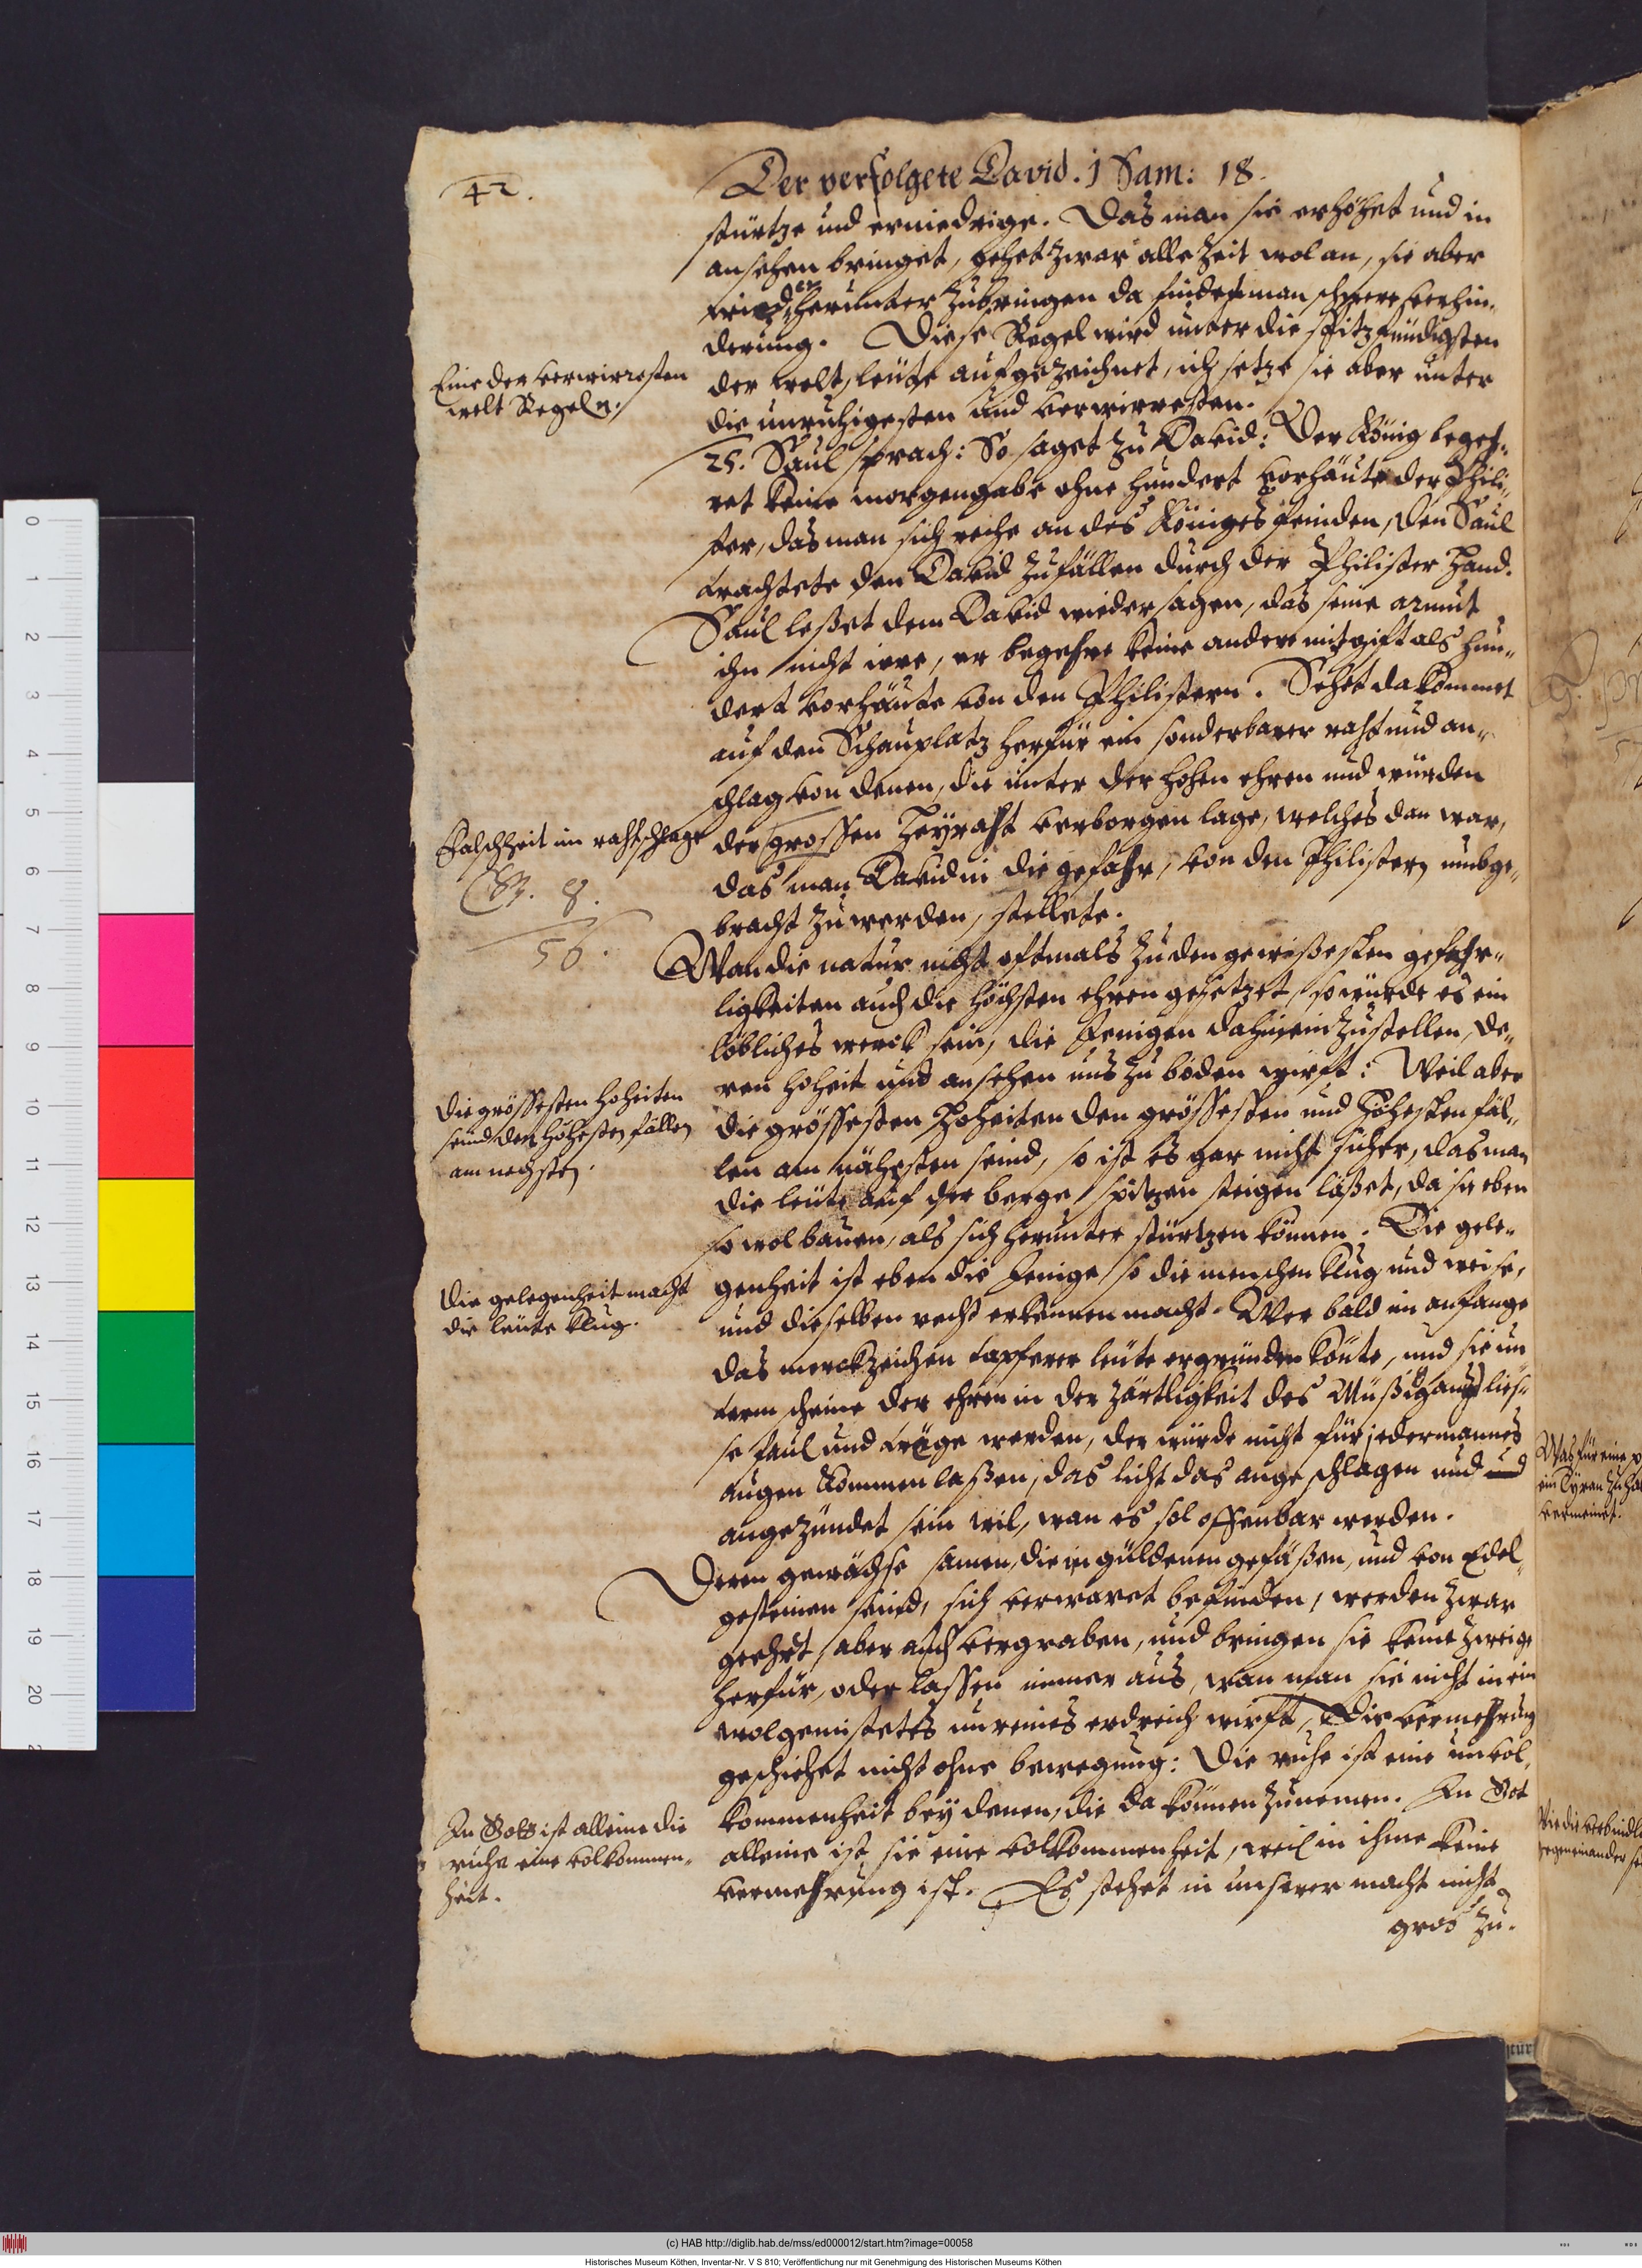 42.
Der verfolgete David. 1 Sam: 18.
stürtze und erniedrige. Das man sie erhöhet und in
ansehen bringet, gehet zwar alle zeit wol an, sie aber
wieder herunter zubringen da findet man schwere verhin„
derung. Diese Regel wird unter die spitzfündigsten
der welt, leute aufgezeichnet, ich setze sie aber unter
die unruhigesten und verwirresten.
Eine der verwirresten
welt Regeln.
25. Saul sprach: So saget zu David: Der König begeh„
ret keine morgengabe ohne hundert vorhäute der Phili„
ster, das man sich reche an des Königes feinden, den Saul
trachtete den David zufällen durch der Philister Hand.
Saul leßet dem David wieder sagen, das seine armut
ihn nicht irre, er begehre keine andere mitgift als hun„
dert vorhäute von den Philistern. Sehet da kommet
auf den Schauplatz herfür ein sonderbarer raht und an„
schlag von denen, die unter der hohen ehren und würden
der grossen Heyraht verborgen lage, welches dan war,
das man David in die gefahr, von den Philistern umbge„
bracht zu werden, stellete.
Falschheit im rahtschlage
B. 8.
56.
Wan die natur nicht oftmals zu den gewißesten gefehr„
ligkeiten auch die höchsten ehren gesetzet, so würde es ein
löbliches werck sein, die Jenigen dahinein zustellen, de„
ren hoheit und ansehen uns zu boden wirft: Weil aber
die grössesten Hoheiten den grössesten und Höhesten fäl„
len am nähesten seind, so ist es gar nicht sicher, das man
die leute auf der berge spitzen steigen läßet, da sie eben
so wol bauen, als sich herunter stürtzen können. Die gele„
genheit ist eben die Jenige so die menschen klug und weise,
und dieselben recht erkennen macht. Wer bald im anfange
das merckzeichen tapferer leute ergründen könte, und sie un
term scheine der ehren in der zärtligkeit des Müßiggangs lies„
se faul und träge werden, der würde nicht für jedermannes
augen kommen laßen, das licht das ange schlagen und und
angezündet sein wil, wan es sol offenbar werden.
Die grössesten hoheiten
seind den höhesten fällen
am nechsten.
Die gelegenheit macht
die leute klug.
Deren gewächse samen, die in güldenen gefäßen, und von Edel„
gesteinen seind, sich verwaret befinden, werden zwar
geehrt, aber auch vergraben, und bringen sie keine zweige
herfür, oder lassen immer aus, wan man sie nicht in ein
wolgemistetes unreines erdreich wirft, Die vermehrung
geschiehet nicht ohne bewegung: Die ruhe ist eine unvol„
kommenheit bey denen, die da können zunemen. In Got
alleine ist, sie eine volkommenheit, weil in ihme keine
vermehrung ist. Es stehet in unserer macht nicht
gros zu.
In Gott ist alleine die
ruhe eine volkommen„
heit.
Was für eine
ein Tyran zu ha
vermeinet.
Wie die verbindl
gegeneinander se
0
1
2
3
4
5
6
7
8
9
10
11
12
13
14
15
16
17
18
19
20
(c) HAB http://diglib.hab.de/mss/ed000012/start.htm?image=00058
Historisches Museum Köthen, Inventar-Nr. V S 810; Veröffentlichung nur mit Genehmigung des Historischen Museums Köthen